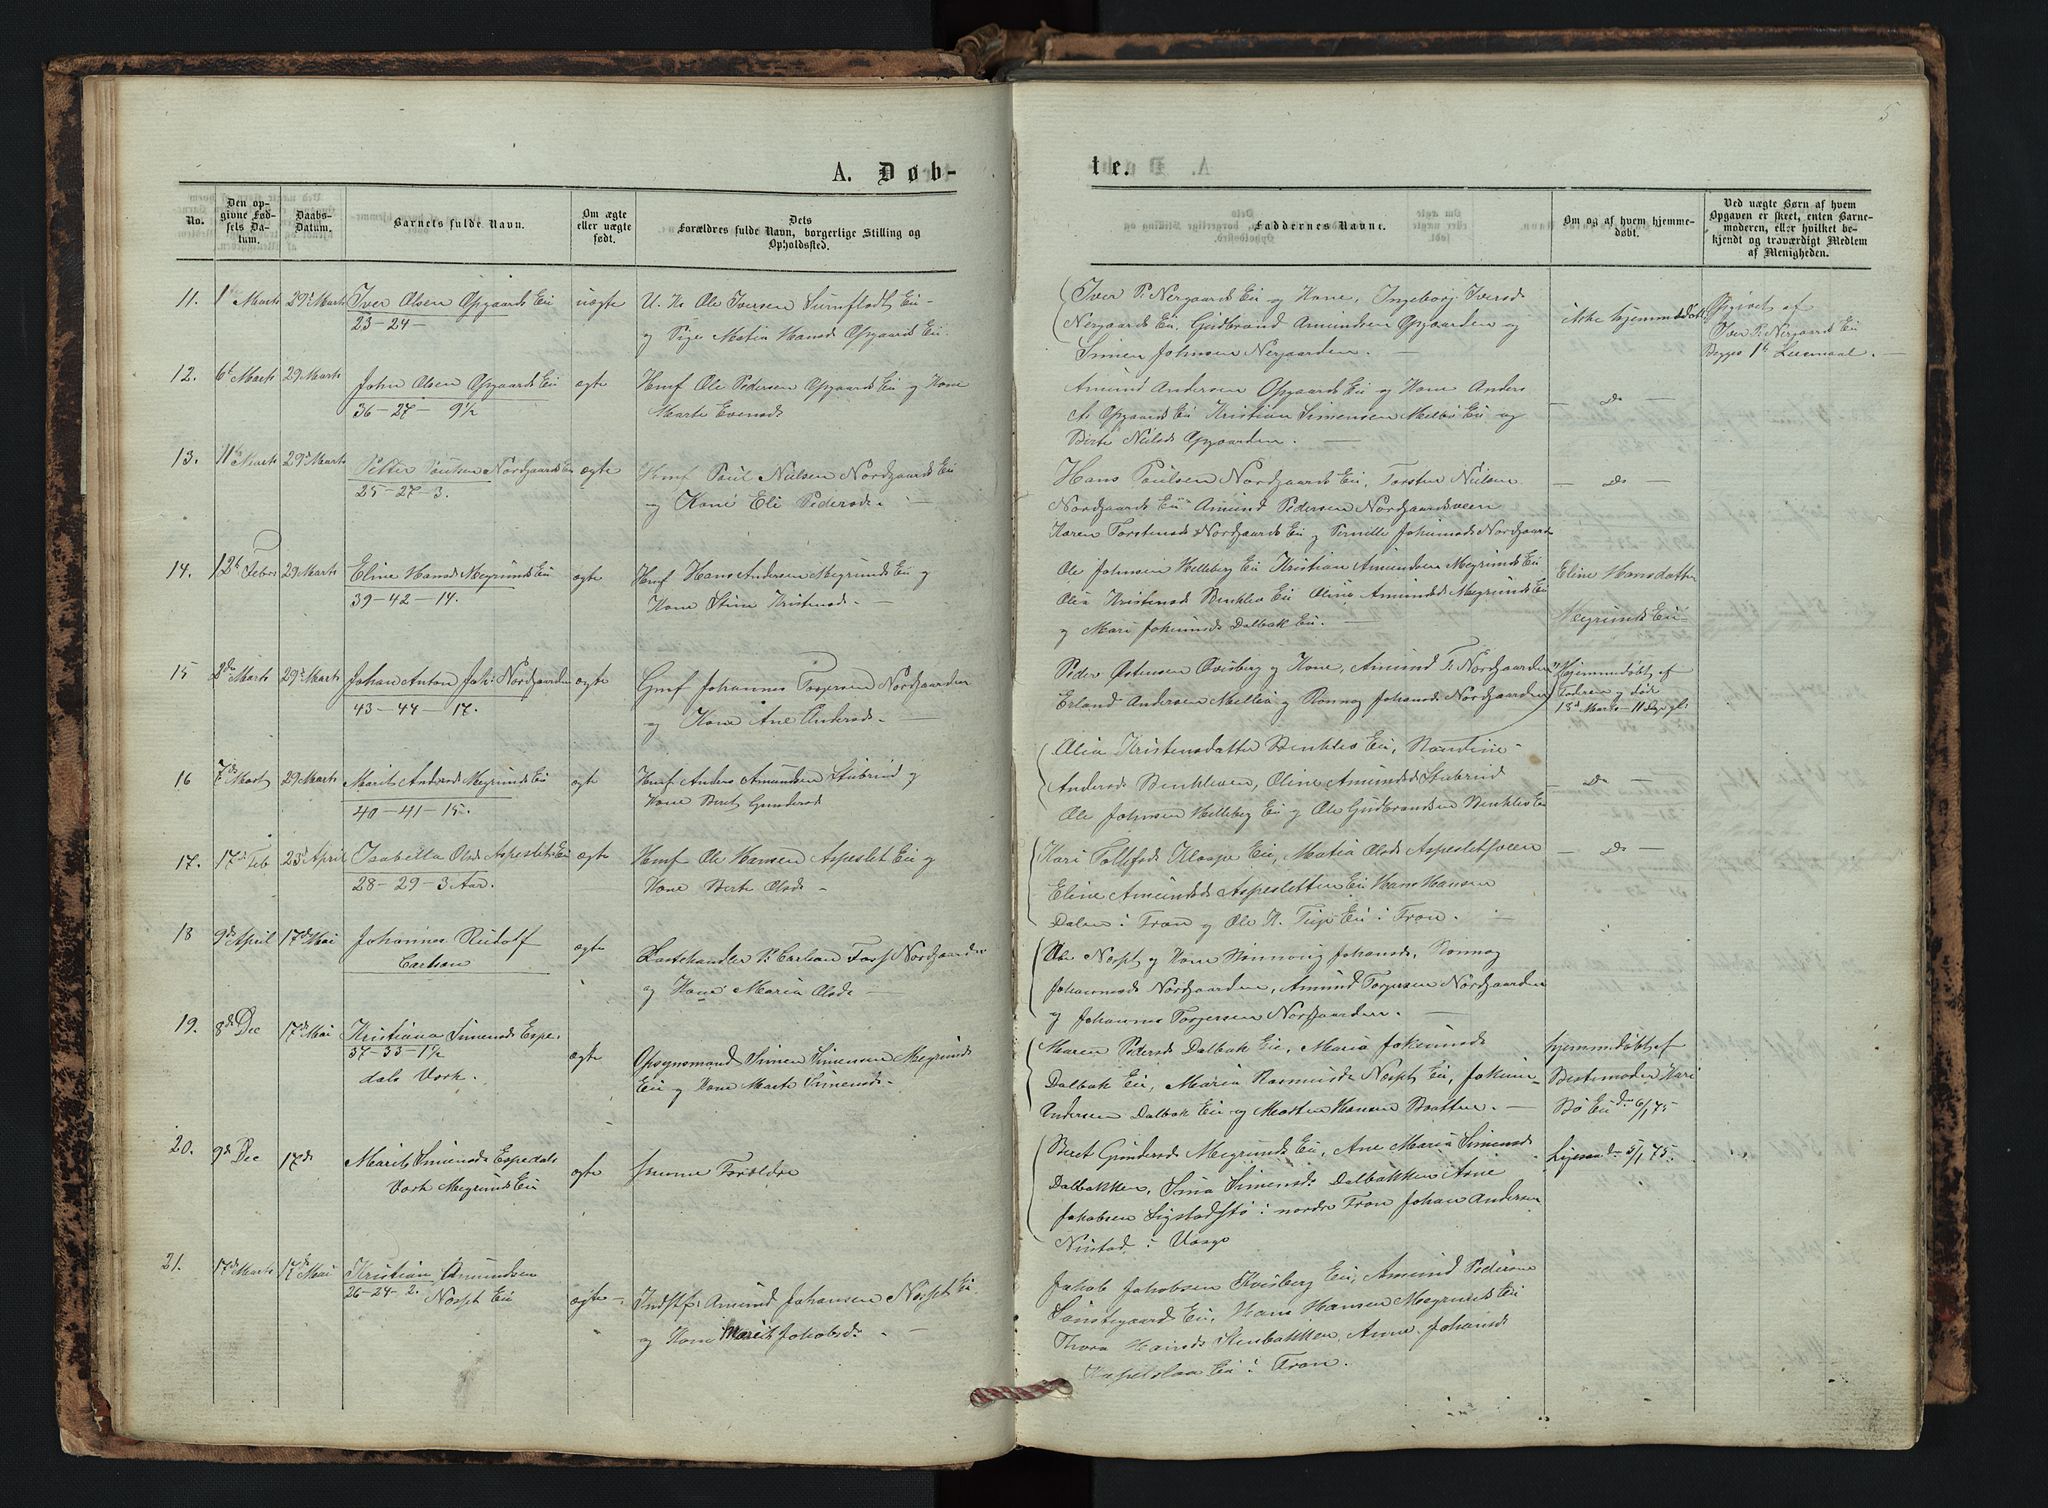 5
A. Døb-
te.
No.
Den op-
givne Fød-
sels Da-
tum.
Daabs-
Datum.
Barnets fulde Navn.
Om ægte
eller uægte
født.
Dets
Forældres fulde Navn, borgerlige Stilling og
Opholdssted.
Faddernes Navne.
Om og af hvem hjemme-
døbt.
Ved uægte Børn af hvem
Opgaven er skeet, enten Barne-
moderen, eller hvilket be-
kjendt og troværdigt Medlem
af Menigheden.
11.
1 Marts
29 Marts
Iver Olsen Opgaards Ei
23-24-
uægte
U. K. Ole Iversen Ei -
og Pige Matia Hansd Opgaards Ei
Iver P. Nergaards Ei og Kone, Ingeborg Iversd
Nergaards Ei, Gudbrand Amundsen Opgaarden og
Simen Johnsen Nergaarden. -
Ikke hjemmedøbt
Opgivet af
Iver P. Nergaards Ei
Begges 1te Leiermaal. -
12.
6t Marts
29 Marts
John Olsen Opgaards Ei
36-27-9½
ægte
Hmf Ole Pedersen Opgaards Ei og Kone
Marte Evensd
Amund Andersen Opgaards Ei og Kone Anders
A. Opgaards Ei Kristian Simensen Melbø Ei og
Berte Nielsd Opgaarden. -
- Do -
13.
11te Marts
29d Marts
Petter Paulsen Nordgaards Ei
25-27-3.
ægte
Hmf Paul Nielsen Nordgaards Ei
og Kone Eli Pedersd. -
Hans Paulsen Nordgaards Ei, Torsten Nielsen
Nordgaards Ei Amund Pedersen Nordgaardsveen
Karen Torstensd Nordgaards Ei og Pernille Johannesd Nordgaarden
- Do -
14.
12t Febr
29 Marts
Eline Hansd Megrunds Ei
39-42-14.
ægte
Hmf Hans Andersen Megrunds Ei og
Kone Stine Kristensd. -
Ole Johnsen Helleberg Ei Kristian Amundsen Megrunds Ei
Olia Kristensd Ei Oline Amundsd Megrunds Ei
og Mari Johannesd Dalbak Ei. -
Eline Hansdatter
Megrunds Ei
15
8de Marts
29d Marts
Johan Anton Joh: Nordgaarden
43-44-17.
ægte
Gmf Johannes Torgersen Nordgaarden
og Kone Ane Andersd. -
Peder Østensen Qvisberg og Kone, Amund T. Nordgaarden
Erland Andersen Mellia og Rønnog Johansd Nordgaarden
Hjemmedøbt af
Fadren og død
18d Marts 11 Dage gl:
16
7de Mart
29 Marts
Marit Andersd Megrunds Ei
40-41-15.
ægte
Hmf Anders Amundsen Stubrud og
Kone Beret Gundersd
Olia Kristensdatter Ei, Randine
Andersd Oline Amundsd Stubrud
Ole Johnsen Helleberg Ei og Ole Gudbrandsen Ei
- Do -
17.
17d Feb
23d April
Isabella Olsd Aspeslets Ei
28-29-3 Aar.
ægte
Hmf Ole Hansen Aspeslet Ei og
Kone Berte Olsd. -
Kari Tollefsd Ei, Matia Olsd Aspesletsveen
Eline Amundsd Aspesletten Ei Hans Hansen
Dalen i Fron og Ole H. Ei i Fron. -
- Do -
18
9de April
17de Mai
Johannes Rudolf
Carlsen
ægte
Carlsen Nordgaarden
og Kone Maria Olsd. -
Ole Næpt og Kone Rønnoug Johansd, Rønnog
Johannesd Nordgaarden, Amund Torgersen Nordgaarden
og Johannes Torgersen Nordgaarden. -
19.
8de Dec
17de Mai
Kristiana Simensd Espe-
37-33-1½
dals Værk.
ægte
Opsynsmand Simen Simensen Megrunds
Ei og Kone Marte Simensd. -
Maren Pedersd Dalbak Ei, Maria Johannesd
Dalbak Ei, Maria Rasmusd Næpt Ei,
Andersen Dalbak Ei og Morten Hansen Braatten. -
hjemmedøbt af
Bestemoder Kari
Bø Ei 6/1 75
20.
9d Dec
17de
Marit Simensd Espedals
Værk Megrunds Ei
ægte
samme Forældre
Beret Gundersd Megrunds Ei, Ane Maria Simensd
Dalbakken, Simensd. Dalbakken Arne
Jakobsen i nordre Fron Johan Andersen
Nustad i Vaage
Ligesaa 5/1 75.
21.
17d Marts
17de Mai
Kristian Amundsen
26-24-2. Næpt Ei
ægte -
Indstf: Amund Johansen Næpt Ei
og Kone Marit Jakobsd. -
Jakob Jakobsen Kvisberg Ei, Amund Pedersen
Ei, Hans Hansen Megrunds Ei
Thora Hansd Stenbakken, Anne Johansd
Ei i Fron.